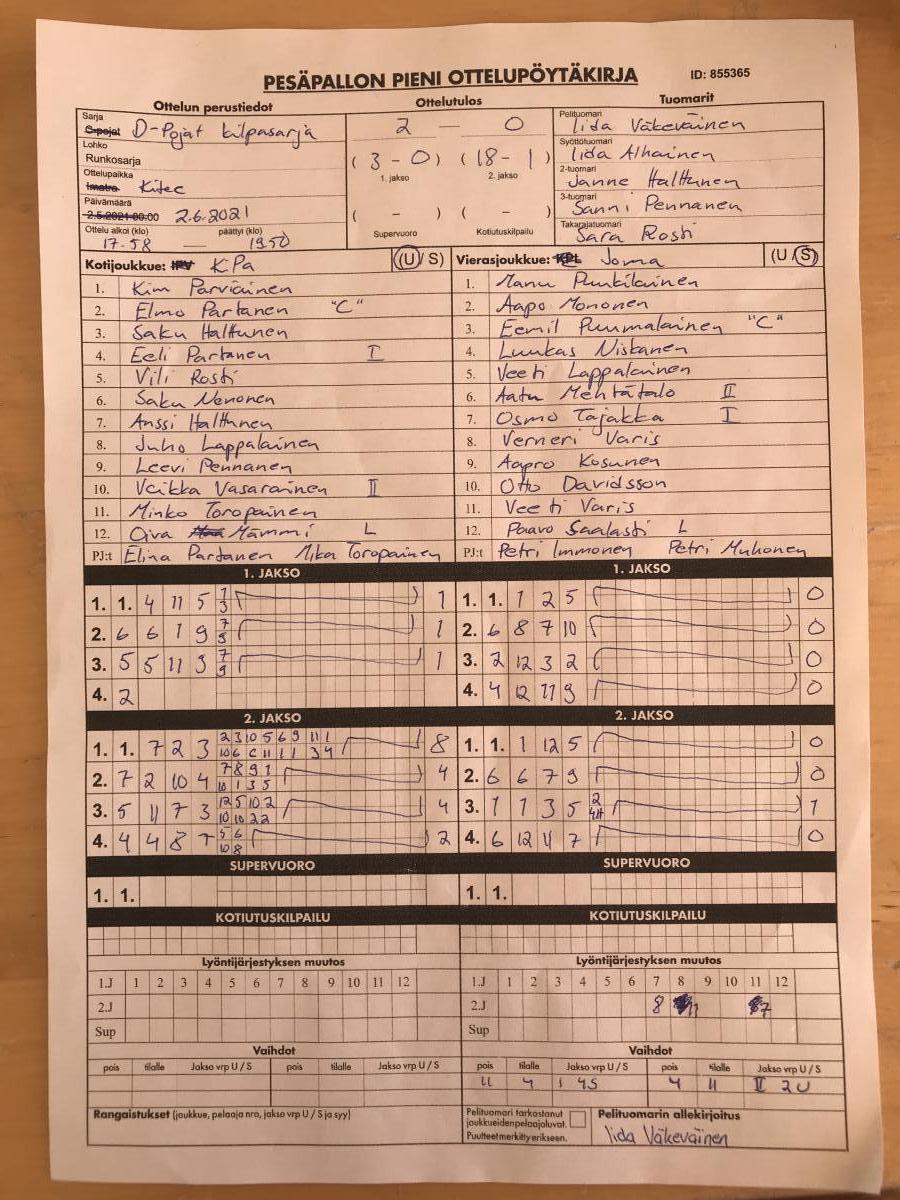 PESÄPALLON PIENI OTTELUPÖYTÄKIRJA ID: 855365
Ottelun perustiedot
Sarja
C-pojat D-Pojat kilpasarja
Lohko
Runkosarja
Ottelupaikka
Imatra Kitee
Päivämäärä
2.5.2021 00:00 2.6.2021
Ottelu alkoi (klo) päättyi (klo)
17.58 — 1950
Ottelutulos
2 — 0
(3 - 0) (18 - 1)
1. jakso 2. jakso
( - ) ( - )
Supervuoro Kotiutuskilpailu
Tuomarit
Pelituomari
Iida Väkeväinen
Syöttötuomari
Iida Alhainen
2-tuomari
Janne Halttunen
3-tuomari
Sanni Pennanen
Takarajatuomari
Sara Rosti
Kotijoukkue: KPa (U / S)
1. Kim Parviainen
2. Elmo Partanen "C"
3. Saku Halttunen
4. Eeli Partanen I
5. Vili Rosti
6. Saku Nenonen
7. Anssi Halttunen
8. Juho Lappalainen
9. Leevi Pennanen
10. Veikka Vasarainen II
11. Minko Toropainen
12. Oiva Mämmi L
PJ:t Elina Partanen Mika Toropainen
Vierasjoukkue: Joma (U / S)
1. Manu Punkilainen
2. Aapo Mononen
3. Eemil Puumalainen "C"
4. Luukas Niskanen
5. Veeti Lappalainen
6. Aatu Mehtätalo II
7. Osmo Tajakka I
8. Verneri Varis
9. Aapro Kosunen
10. Otto Davidsson
11. Veeti Varis
12. Paavo Saalasti L
PJ:t Petri Immonen Petri Muhonen
1. JAKSO
1. 1. 4 11 5 1
2. 6 6 1 9 1
3. 5 5 11 3 1
4. 2
1. JAKSO
1. 1. 1 2 5 0
2. 6 8 7 10 0
3. 2 12 3 2 0
4. 4 12 11 9 0
2. JAKSO
1. 1. 7 2 3 8
2. 7 2 10 4 4
3. 5 11 7 3 4
4. 4 4 8 7 2
2. JAKSO
1. 1. 1 12 5 0
2. 6 6 7 9 0
3. 1 1 3 5 1
4. 6 12 11 7 0
SUPERVUORO
1. 1.
SUPERVUORO
1. 1.
KOTIUTUSKILPAILU
KOTIUTUSKILPAILU
Lyöntijärjestyksen muutos
1.J 1 2 3 4 5 6 7 8 9 10 11 12
2.J
Sup
Lyöntijärjestyksen muutos
1.J 1 2 3 4 5 6 7 8 9 10 11 12
2.J 8 11 7
Sup
Vaihdot
pois tilalle Jakso vrp U / S pois tilalle Jakso vrp U / S
Vaihdot
pois tilalle Jakso vrp U / S pois tilalle Jakso vrp U / S
11 4 I 4S 4 11 II 2U
Rangaistukset (joukkue, pelaaja nro, jakso vrp U / S ja syy)
Pelituomari tarkastanut
joukkueiden pelaajaluvat.
Puutteet merkitty erikseen.
Pelituomarin allekirjoitus
Iida Väkeväinen